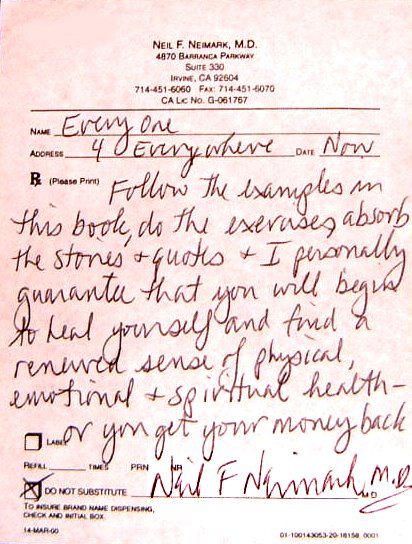 NEIL F. NEIMARK, M.D.
4870 BARRANCA PARKWAY
SUITE 330
IRVINE, CA 92604
714-451-6060 FAX: 714-451-6070
CA LIC NO. G-061767
NAME Every One
ADDRESS 4 Everywhere DATE Now
Rx (Please Print) Follow the examples in
this book, do the exercises, absorb
the stories + quotes + I personally
guarantee that you will begin
to heal yourself and find a
renewed sense of physical,
emotional + spiritual health-
LABEL or you get your money back
REFILL TIMES PRN NR
DO NOT SUBSTITUTE Neil F Neimark, M.D. M.D.
TO INSURE BRAND NAME DISPENSING,
CHECK AND INITIAL BOX.
14-MAR-00 01-100143053-20-18158, 0001